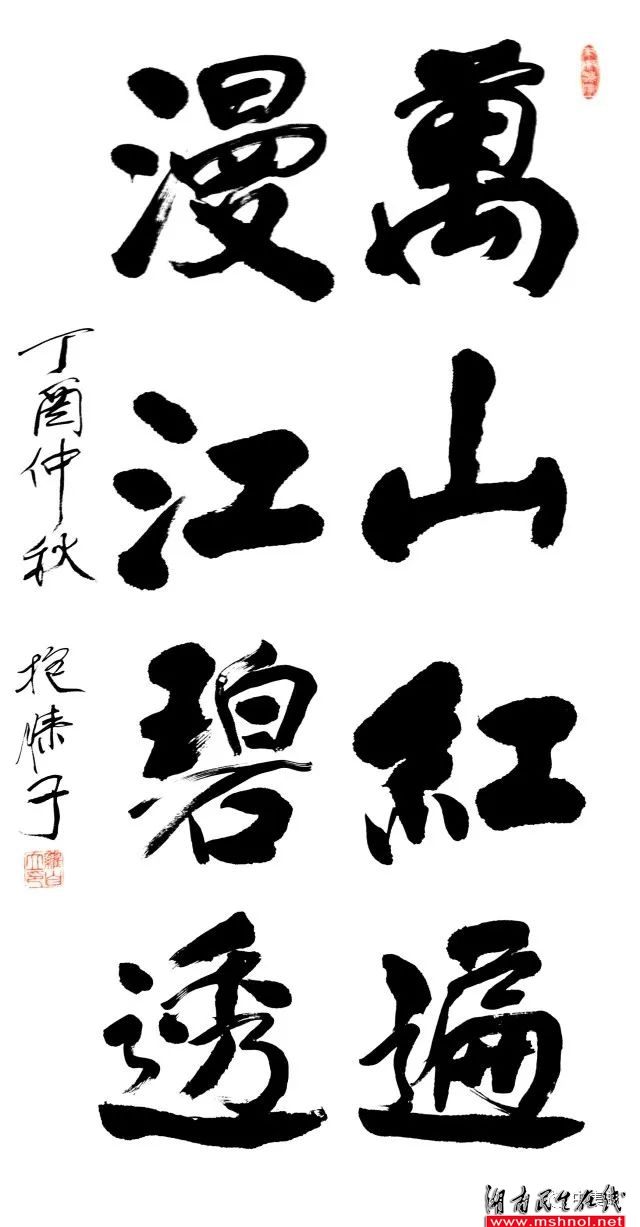 萬山紅遍
漫江碧透
丁酉仲秋
抱愫子
湖南民生在线
www.mshnol.net